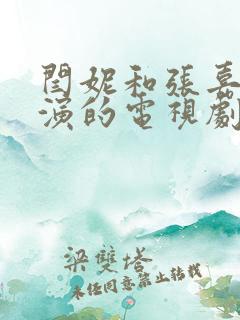 閆妮和張嘉
演的電視劇
梁雙塔
未经同意禁止转载